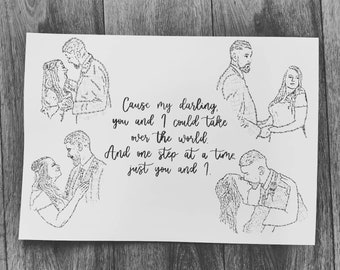 Cause my darling,
you and I could take
over the world.
And one step at a time,
just you and I.